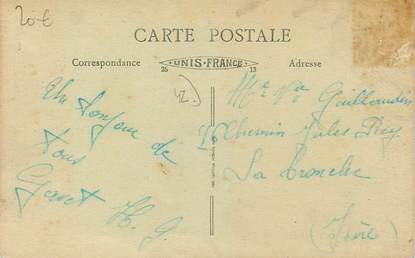 20€
CARTE POSTALE
Correspondance
UNIS-FRANCE
Adresse
26 13
42.
Un bonjour de
tous
H. J.
Mme Vve Guillaudin
Chemin Jules Rey
La Tronche
(Isère)